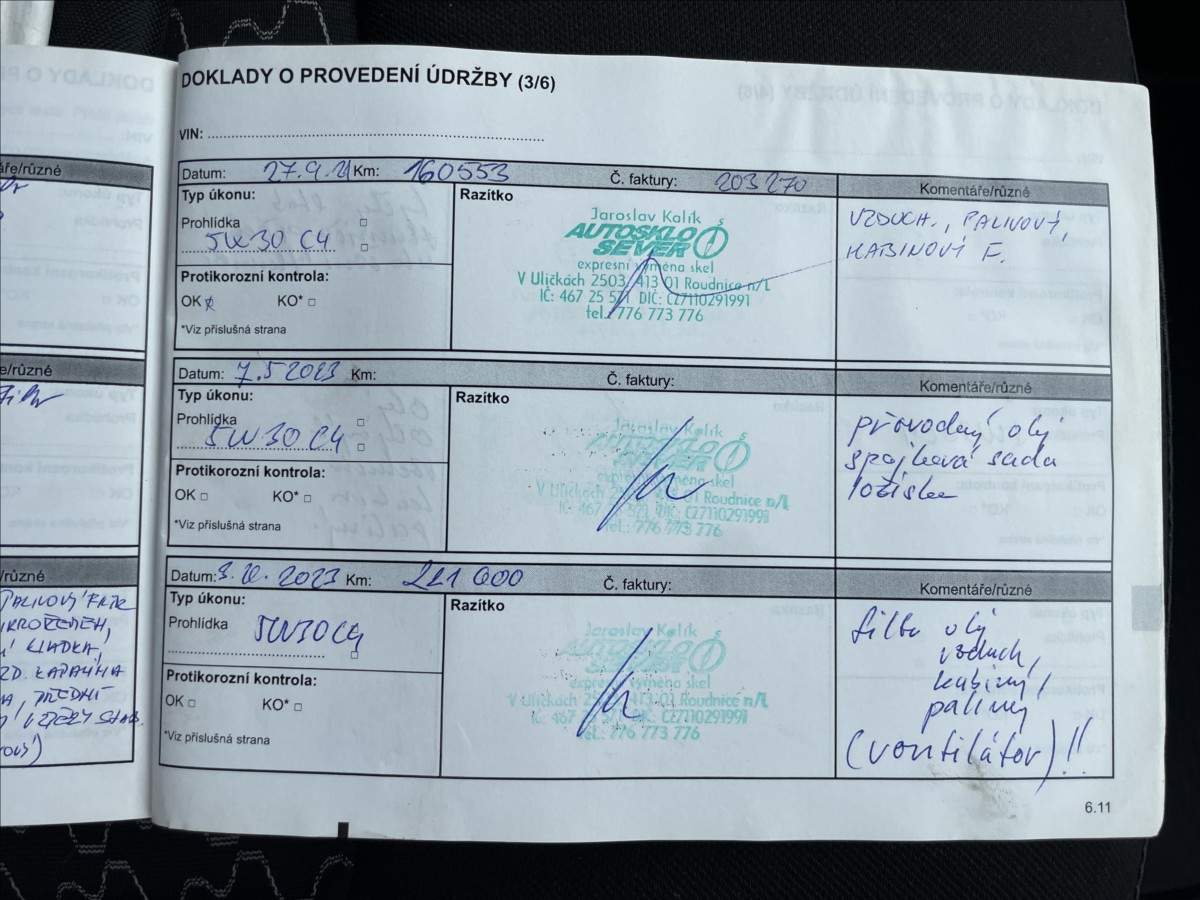 DOKLADY O PROVEDENÍ ÚDRŽBY (3/6)
VIN:
Datum: 27.9.21 Km: 160553 Č. faktury: 203270 Komentáře/různé
Typ úkonu:
Prohlídka
5W30 C4
Protikorozní kontrola:
OK KO*
*Viz příslušná strana
Razítko
Jaroslav Kalík
AUTOSKLO
SEVER
expresní výměna skel
V Uličkách 2503, 413 01 Roudnice n/L
IČ: 467 25 571 DIČ: CZ7110291991
tel.: 776 773 776
VZDUCH., PALIVOVÝ,
KABINOVÝ F.
Datum: 7.5 2023 Km: Č. faktury: Komentáře/různé
Typ úkonu:
Prohlídka
5W30 C4
Protikorozní kontrola:
OK KO*
*Viz příslušná strana
Razítko
Jaroslav Kalík
AUTOSKLO
SEVER
expresní výměna skel
V Uličkách 2503, 413 01 Roudnice n/L
IČ: 467 25 571 DIČ: CZ7110291991
tel.: 776 773 776
převodový olej
spojková sada
ložiska
Datum: Km: Č. faktury: Komentáře/různé
Typ úkonu:
Prohlídka
5W30 C4
Protikorozní kontrola:
OK KO*
*Viz příslušná strana
Razítko
Jaroslav Kalík
AUTOSKLO
SEVER
expresní výměna skel
V Uličkách 2503, 413 01 Roudnice n/L
IČ: 467 25 571 DIČ: CZ7110291991
tel.: 776 773 776
filtr olej
vzduch,
kabiný,
palivný
(ventilátor)!!
6.11
áře/různé
e/různé
/různé
PALIVOVÝ FILTR
KLADKA,